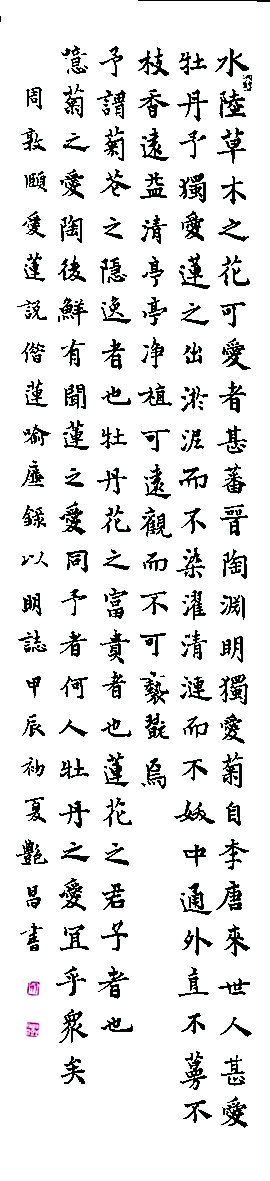 水陸草木之花可愛者甚蕃晉陶淵明獨愛菊自李唐來世人甚愛
牡丹予獨愛蓮之出淤泥而不染濯清漣而不妖中通外直不蔓不
枝香遠益清亭亭净植可遠觀而不可褻翫焉
予謂菊花之隱逸者也牡丹花之富貴者也蓮花之君子者也
噫菊之愛陶後鮮有聞蓮之愛同予者何人牡丹之愛宜乎衆矣
周敦頤愛蓮説借蓮喻廉録以明誌甲辰初夏艷昌書